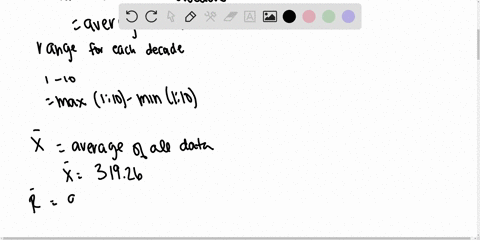 = aver
range for each decade
1-10
= max (1:10) - min (1:10)
X̄ = average of all data
x̄ = 319.26
R̄ = a